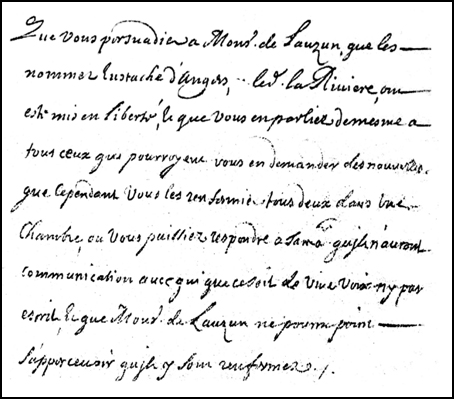 Que vous persuadiez a Mons.r de Lauzun que les
nommez Eustache d'Angers, et led. la Riviere, ont
esté mis en liberté, & que vous en parliez de mesme a
tous ceux qui pourroyent vous en demander des nouvelles
que cependant vous les renfermiez tous deux dans une
chambre, ou vous puissiez respondre a sa ma.té qu'ils n'auront
communication avec qui que ce soit de vive voix ny par
escrit, & que Mons.r de Lauzun ne pourra point
s'appercevoir qu'ils y sont renfermez.